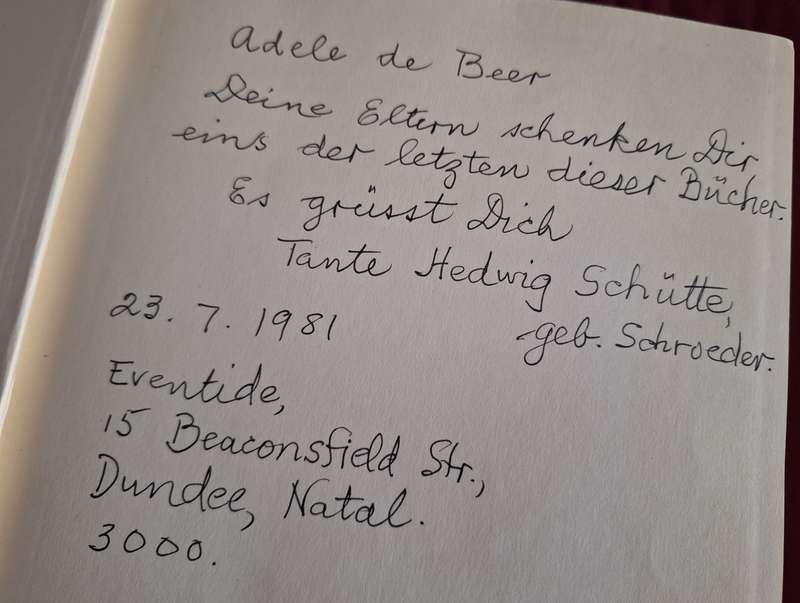 Adele de Beer
Deine Eltern schenken Dir
eins der letzten dieser Bücher.
Es grüsst Dich
Tante Hedwig Schütte,
geb. Schroeder.
23. 7. 1981
Eventide,
15 Beaconsfield Str.,
Dundee, Natal.
3000.